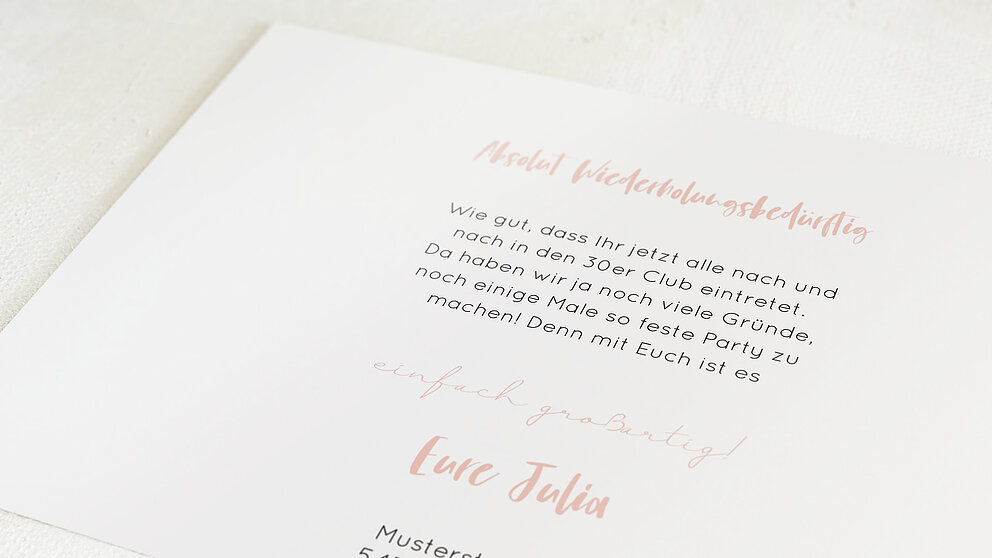 Absolut Wiederholungsbedürftig
Wie gut, dass Ihr jetzt alle nach und
nach in den 30er Club eintretet.
Da haben wir ja noch viele Gründe,
noch einige Male so feste Party zu
machen! Denn mit Euch ist es
einfach großartig!
Eure Julia